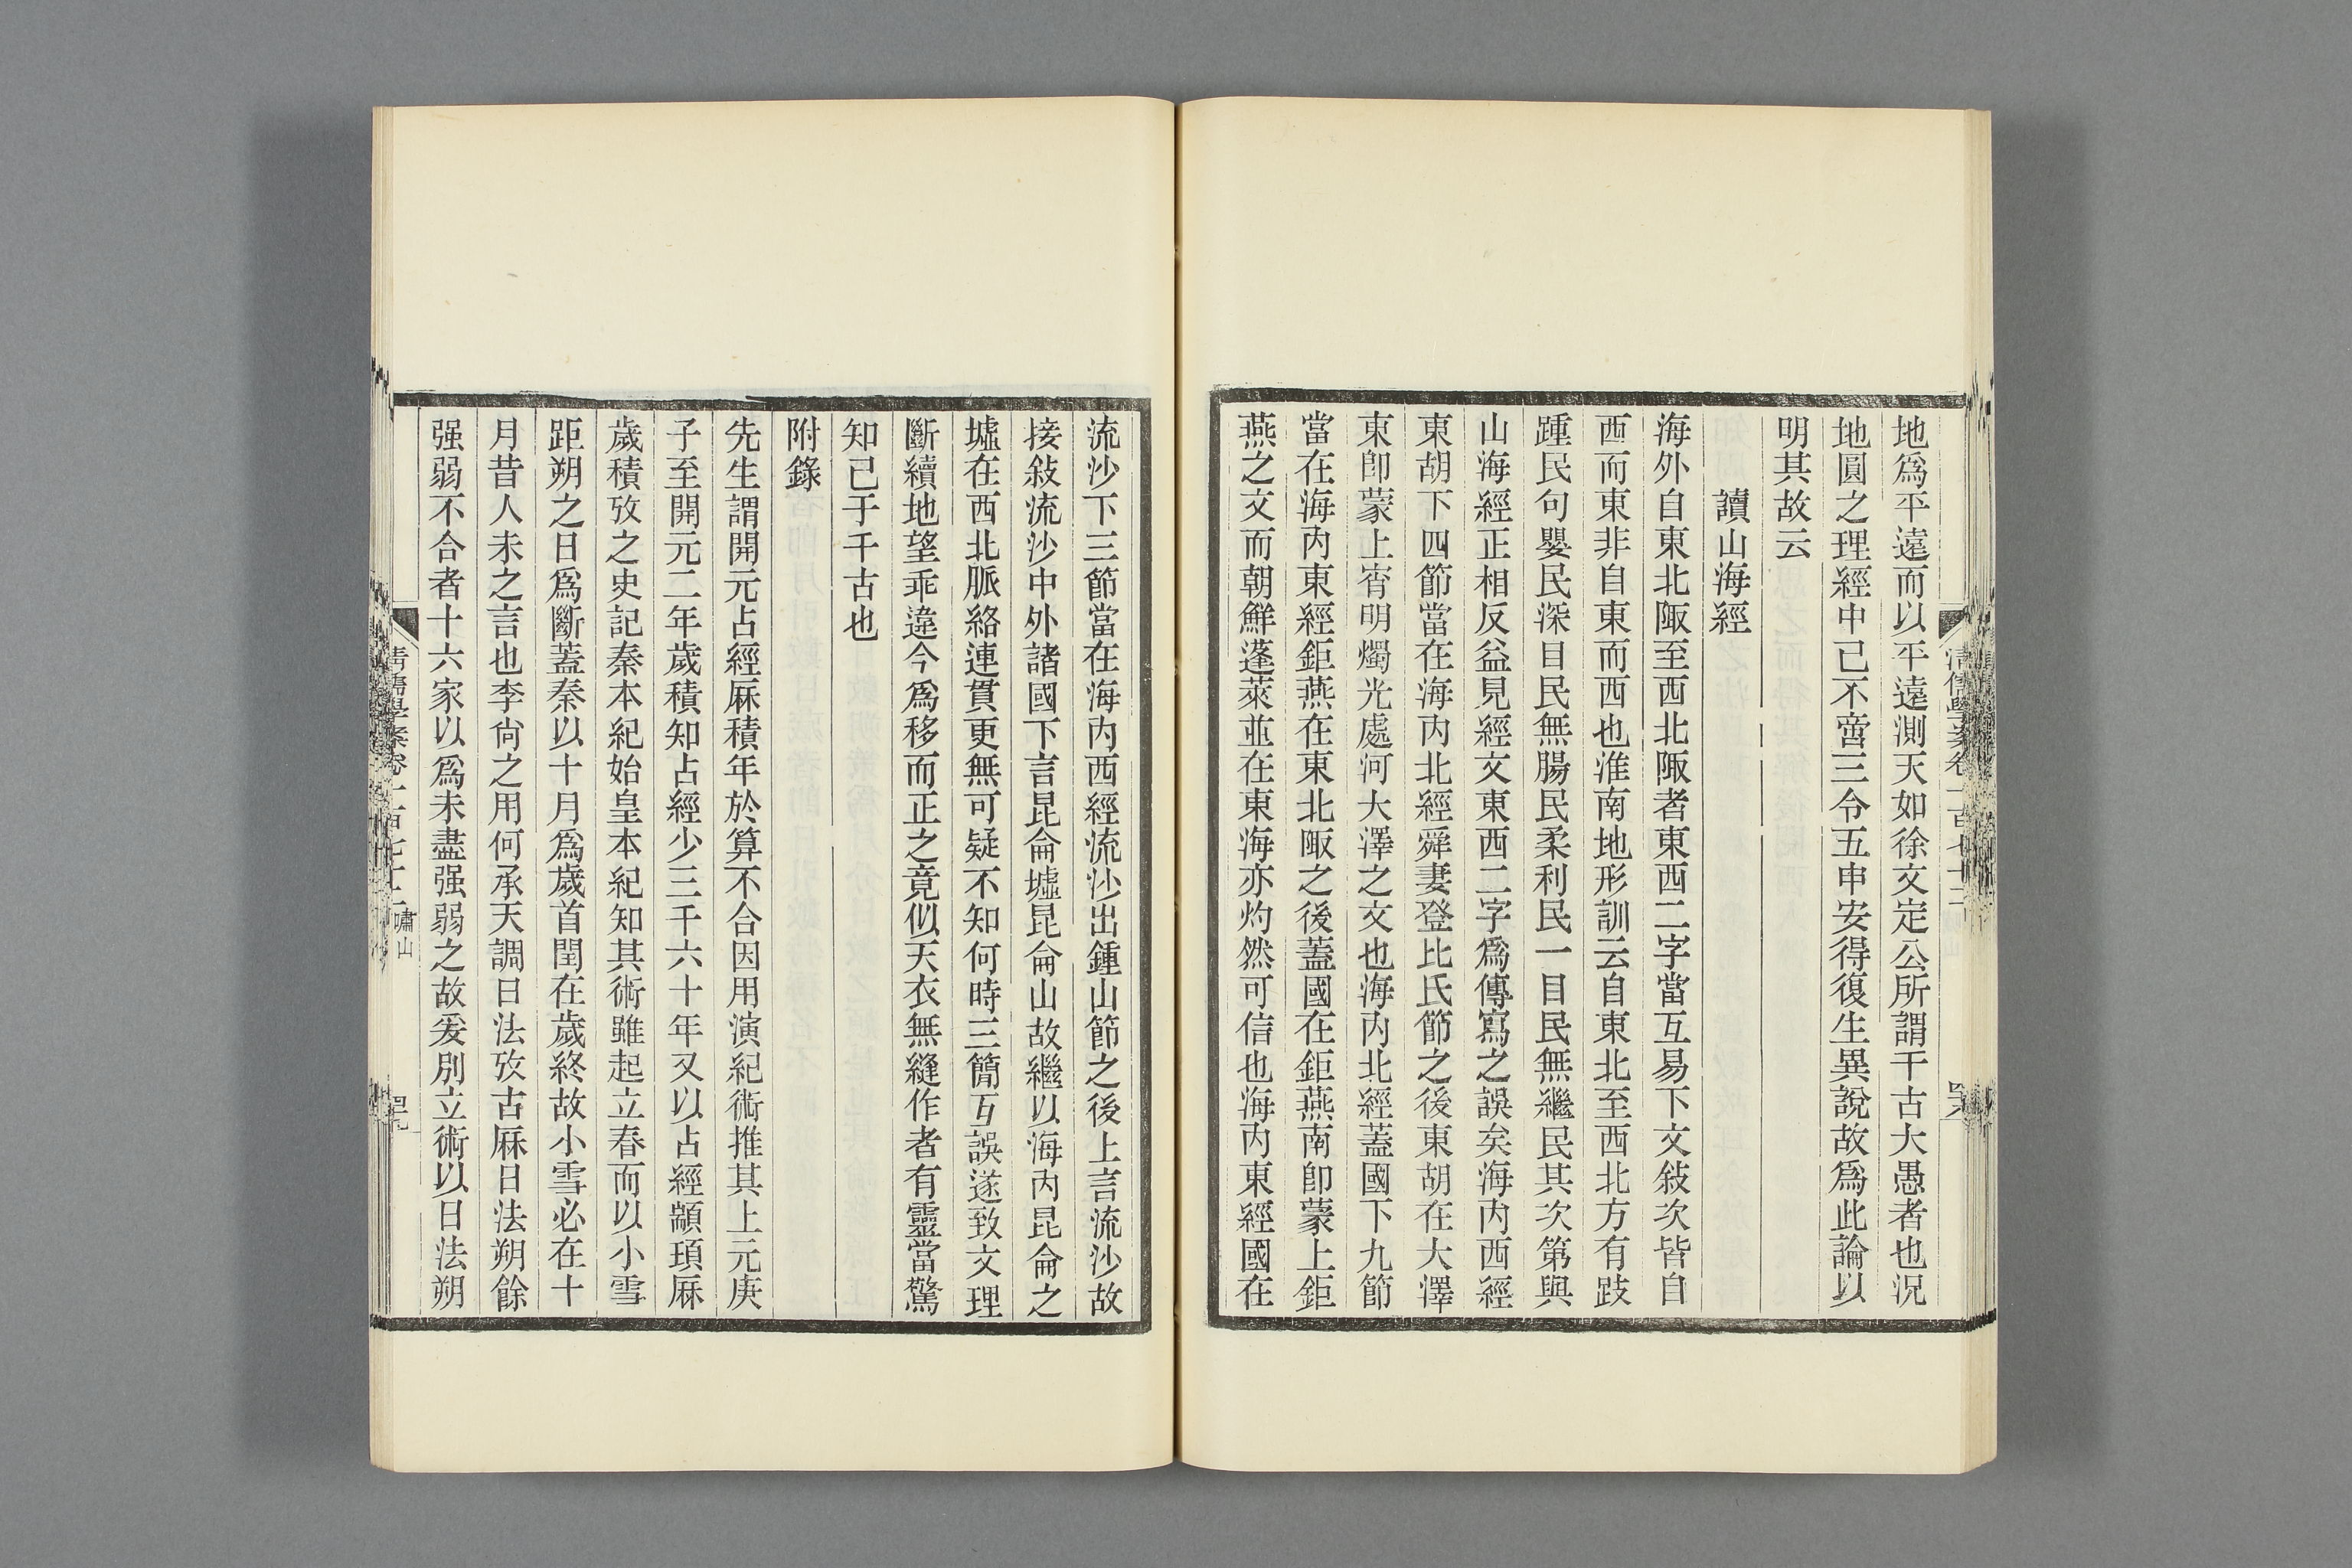 地爲平遠而以平遠測天如徐文定公所謂千古大愚者也況
地圓之理經中已不啻三令五申安得復生異說故爲此論以
明其故云
讀山海經
海外自東北陬至西北陬者東西二字當互易下文敍次皆自
西而東非自東而西也淮南地形訓云自東北至西北方有跂
踵民句嬰民深目民無腸民柔利民一目民無繼民其次第與
山海經正相反益見經文東西二字爲傳寫之誤矣海內西經
東胡下四節當在海內北經舜妻登比氏節之後東胡在大澤
東卽蒙上宵明燭光處河大澤之文也海內北經蓋國下九節
當在海內東經鉅燕在東北陬之後蓋國在鉅燕南卽蒙上鉅
燕之文而朝鮮蓬萊並在東海亦灼然可信也海內東經國在
流沙下三節當在海內西經流沙出鍾山節之後上言流沙故
接敍流沙中外諸國下言昆侖墟昆侖山故繼以海內昆侖之
墟在西北脈絡連貫更無可疑不知何時三簡互誤遂致文理
斷續地望乖違今爲移而正之竟似天衣無縫作者有靈當驚
知己于千古也
附錄
先生謂開元占經厤積年於算不合因用演紀術推其上元庚
子至開元二年歲積知占經少三千六十年又以占經顓頊厤
歲積攷之史記秦本紀始皇本紀知其術雖起立春而以小雪
距朔之日爲斷蓋秦以十月爲歲首閏在歲終故小雪必在十
月昔人未之言也李尙之用何承天調日法攷古厤日法朔餘
强弱不合者十六家以爲未盡强弱之故爰別立術以日法朔
清儒學案卷一百七十二
嘯山